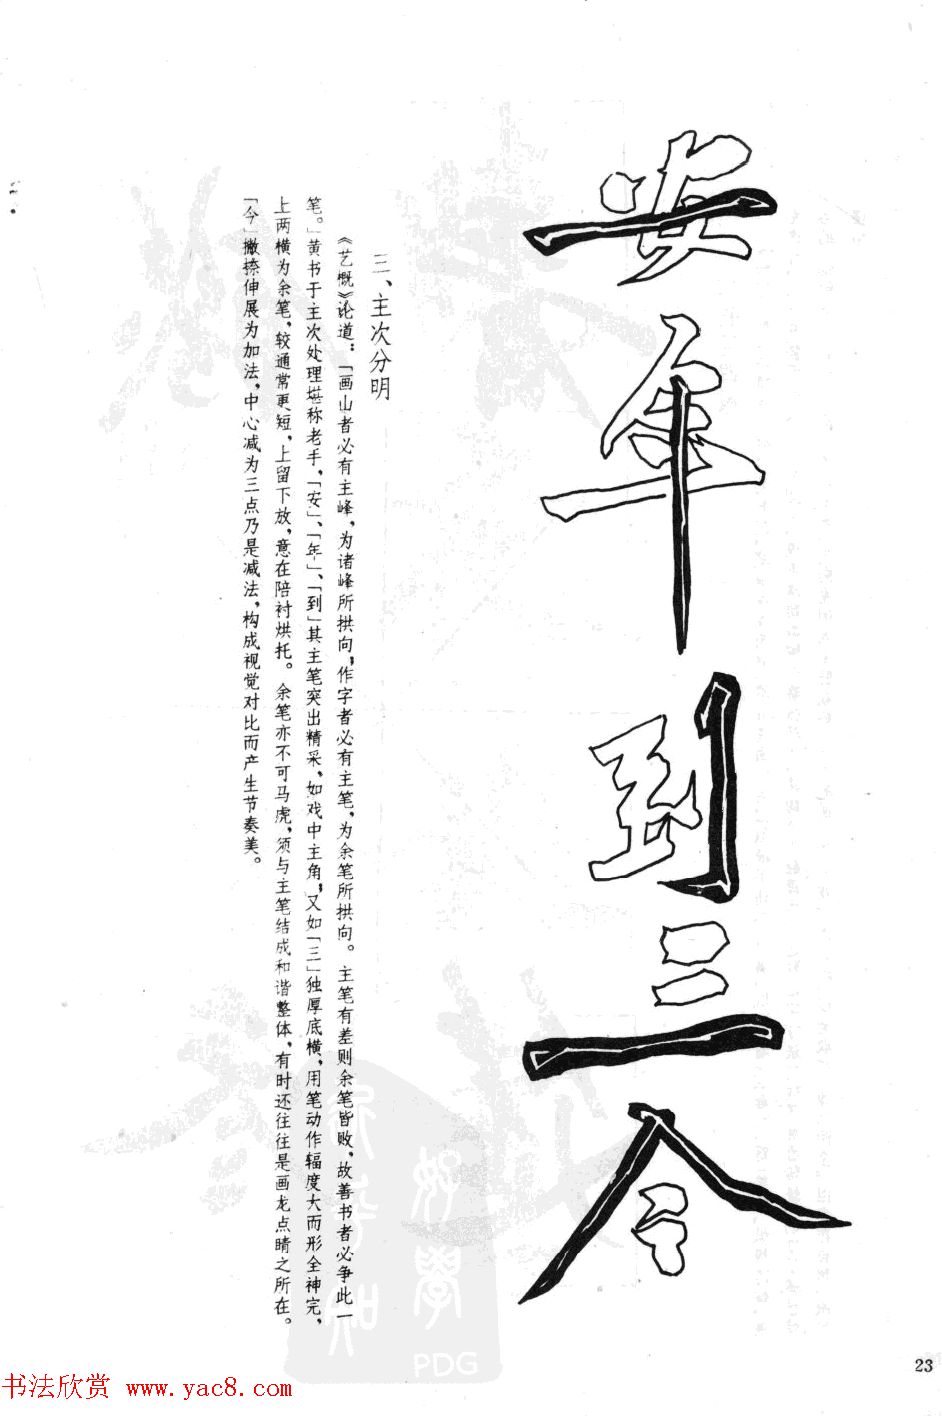 安年到三今
三、主次分明
《艺概》论道：「画山者必有主峰，为诸峰所拱向，作字者必有主笔，为余笔所拱向。主笔有差则余笔皆败，故善书者必争此一
笔。」黄书于主次处理堪称老手，「安」、「年」、「到」其主笔突出精采，如戏中主角，又如「三」独厚底横，用笔动作辐度大而形全神完，
上两横为余笔，较通常更短，上留下放，意在陪衬烘托。余笔亦不可马虎，须与主笔结成和谐整体，有时还往往是画龙点睛之所在。
「今」撇捺伸展为加法，中心减为三点乃是减法，构成视觉对比而产生节奏美。
PDG
23
书法欣赏 www.yac8.com